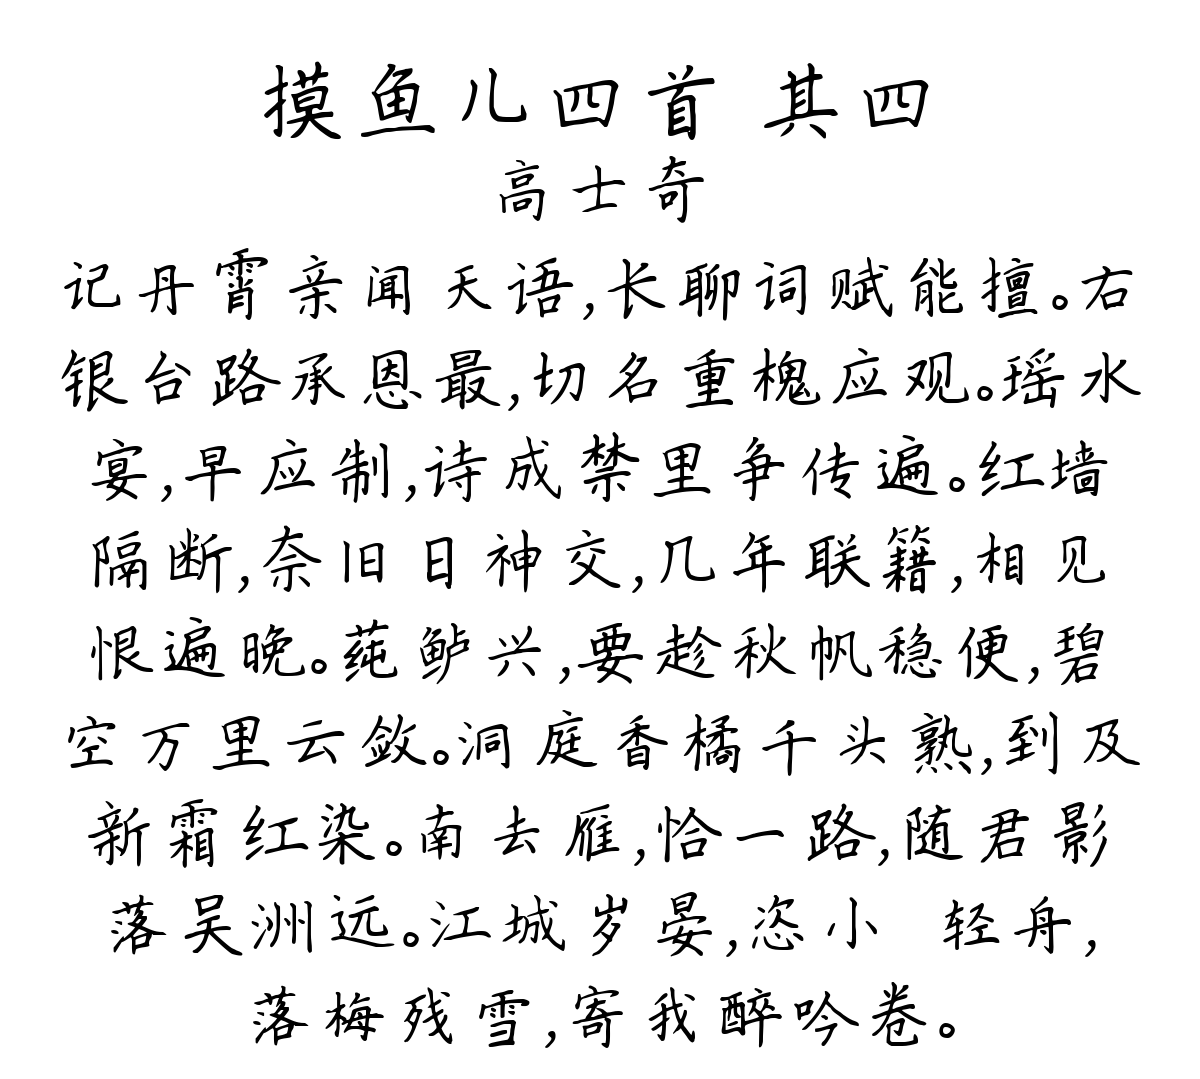 摸鱼儿四首 其四
高士奇
记丹霄亲闻天语,长聊词赋能擅。右
银台路承恩最,切名重槐应观。瑶水
宴,早应制,诗成禁里争传遍。红墙
隔断,奈旧日神交,几年联籍,相见
恨遍晚。莼鲈兴,要趁秋帆稳便,碧
空万里云敛。洞庭香橘千头熟,到及
新霜红染。南去雁,恰一路,随君影
落吴洲远。江城岁晏,恣小 轻舟,
落梅残雪,寄我醉吟卷。